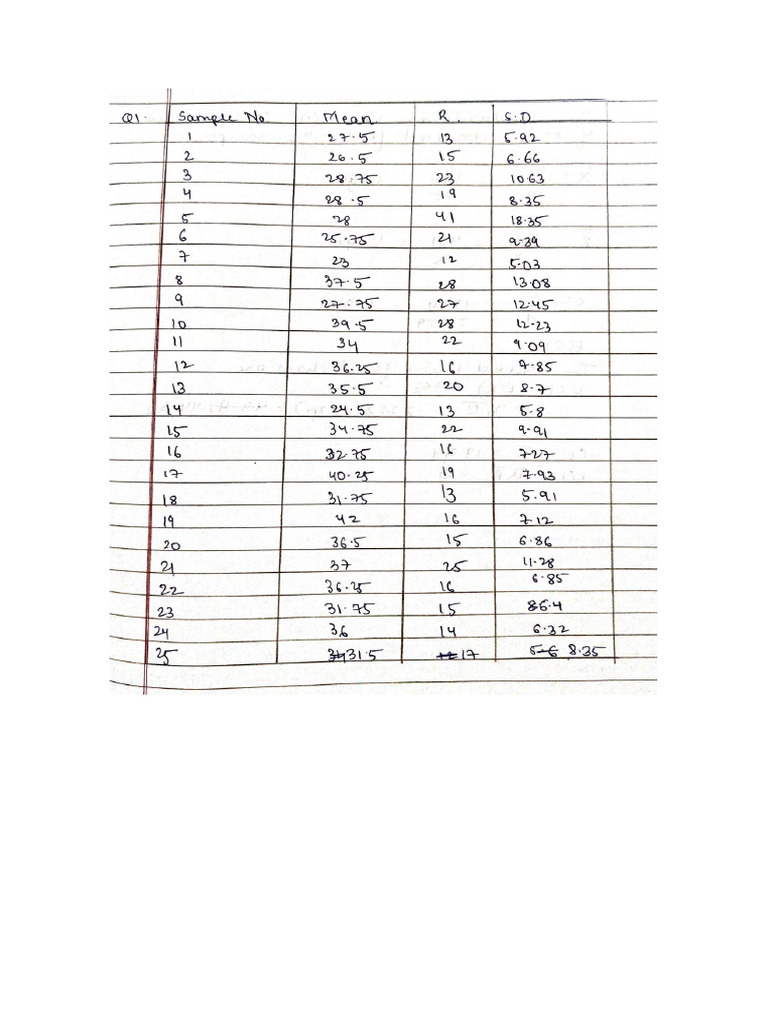 Q1. Sample No. Mean R. S.D
1 27.5 13 5.92
2 26.5 15 6.66
3 28.75 23 10.63
4 28.5 19 8.35
5 28 41 18.35
6 25.75 21 9.39
7 23 12 5.03
8 37.5 28 13.08
9 27.75 27 12.45
10 39.5 28 12.23
11 34 22 9.09
12 36.25 16 7.85
13 35.5 20 8.7
14 24.5 13 5.8
15 34.75 22 9.91
16 32.75 16 7.27
17 40.25 19 7.93
18 31.75 13 5.91
19 42 16 7.12
20 36.5 15 6.86
21 37 25 11.28
22 36.25 16 6.85
23 31.75 15 86.4
24 36 14 6.32
25 31.5 17 8.35